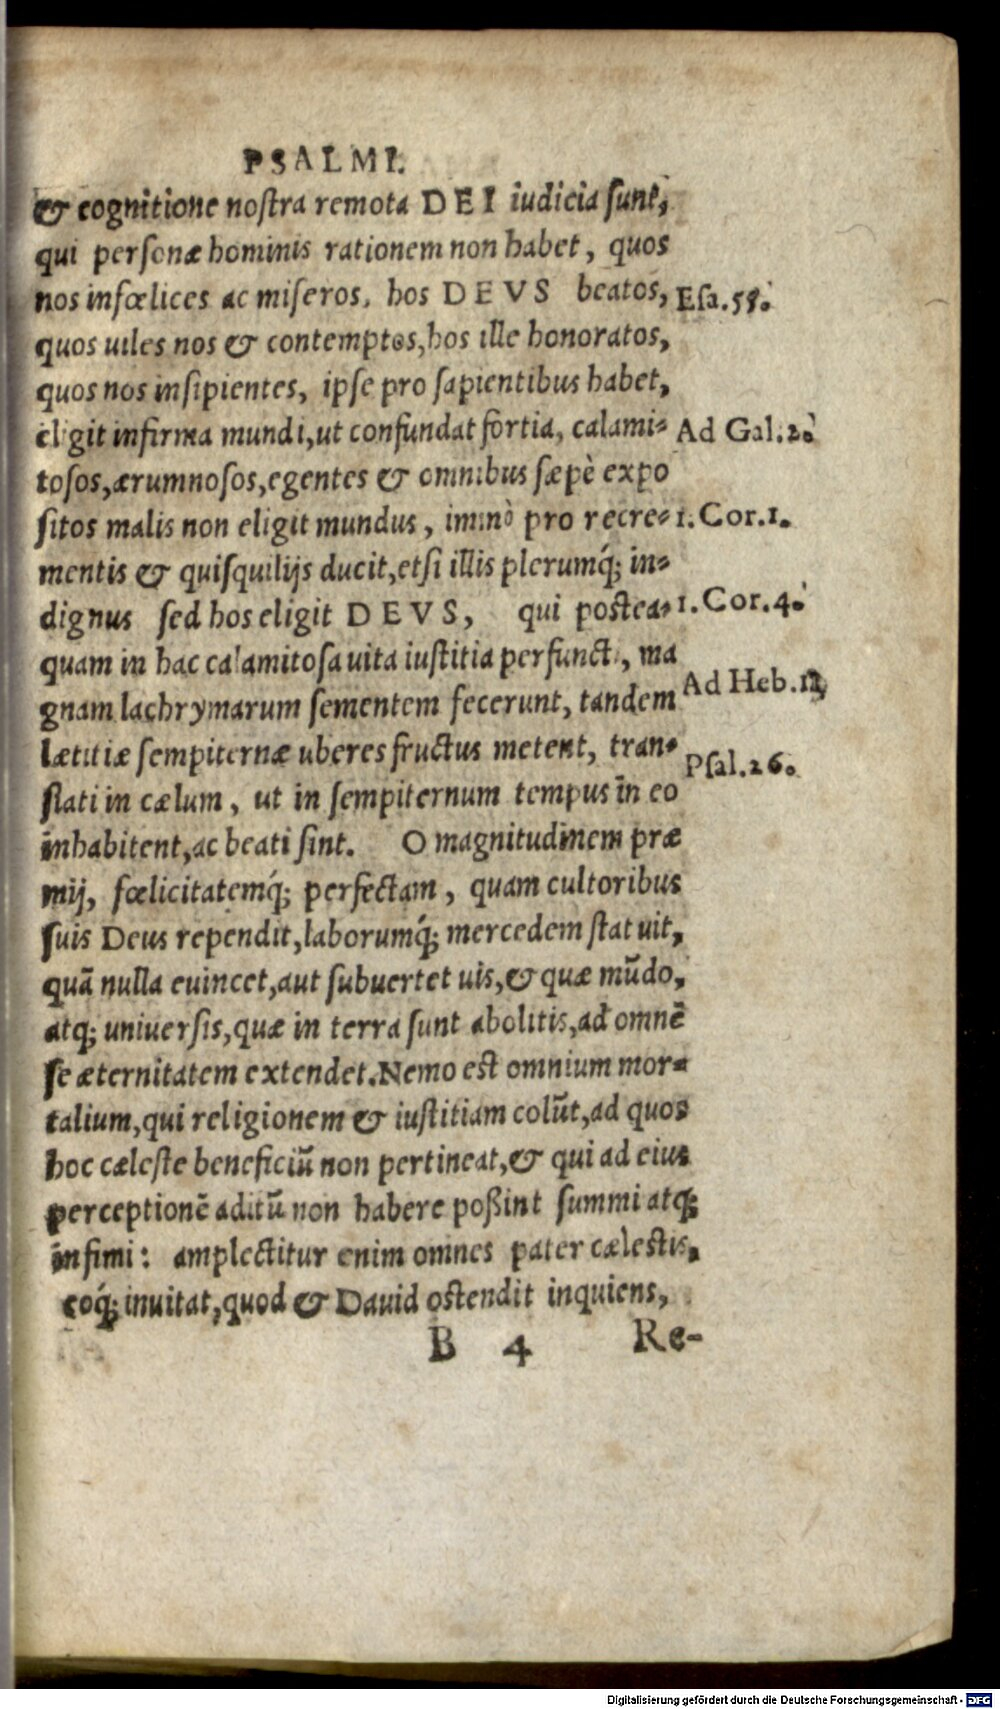 PSALMI.
& cognitione nostra remota DEI iudicia sunt,
qui personæ hominis rationem non habet, quos
nos infœlices ac miseros, hos DEVS beatos,
Esa.55.
quos uiles nos & contemptos, hos ille honoratos,
quos nos insipientes, ipse pro sapientibus habet,
eligit infirma mundi, ut confundat fortia, calami-
Ad Gal.2.
tosos, ærumnosos, egentes & omnibus sæpè expo
sitos malis non eligit mundus, immò pro recre-
1. Cor.1.
mentis & quisquilijs ducit, etsi illis plerumq́; in-
dignus sed hos eligit DEVS, qui postea-
1. Cor.4.
quam in hac calamitosa uita iustitia perfuncti, ma
gnam lachrymarum sementem fecerunt, tandem
Ad Heb.
lætitiæ sempiternæ uberes fructus metent, tran-
Psal.26.
slati in cælum, ut in sempiternum tempus in eo
inhabitent, ac beati sint. O magnitudinem præ
mij, fœlicitatemq́; perfectam, quam cultoribus
suis Deus rependit, laborumq́; mercedem statuit,
quā nulla euincet, aut subuertet uis, & quæ mūdo,
atq; uniuersis, quæ in terra sunt abolitis, ad omnē
se æternitatem extendet. Nemo est omnium mor-
talium, qui religionem & iustitiam colūt, ad quos
hoc cæleste beneficiū non pertineat, & qui ad eius
perceptionē aditū non habere poßint summi atq;
infimi: amplectitur enim omnes pater cælestis,
eoq́; inuitat, quod & Dauid ostendit inquiens,
B 4 Re-
Digitalisierung gefördert durch die Deutsche Forschungsgemeinschaft - DFG